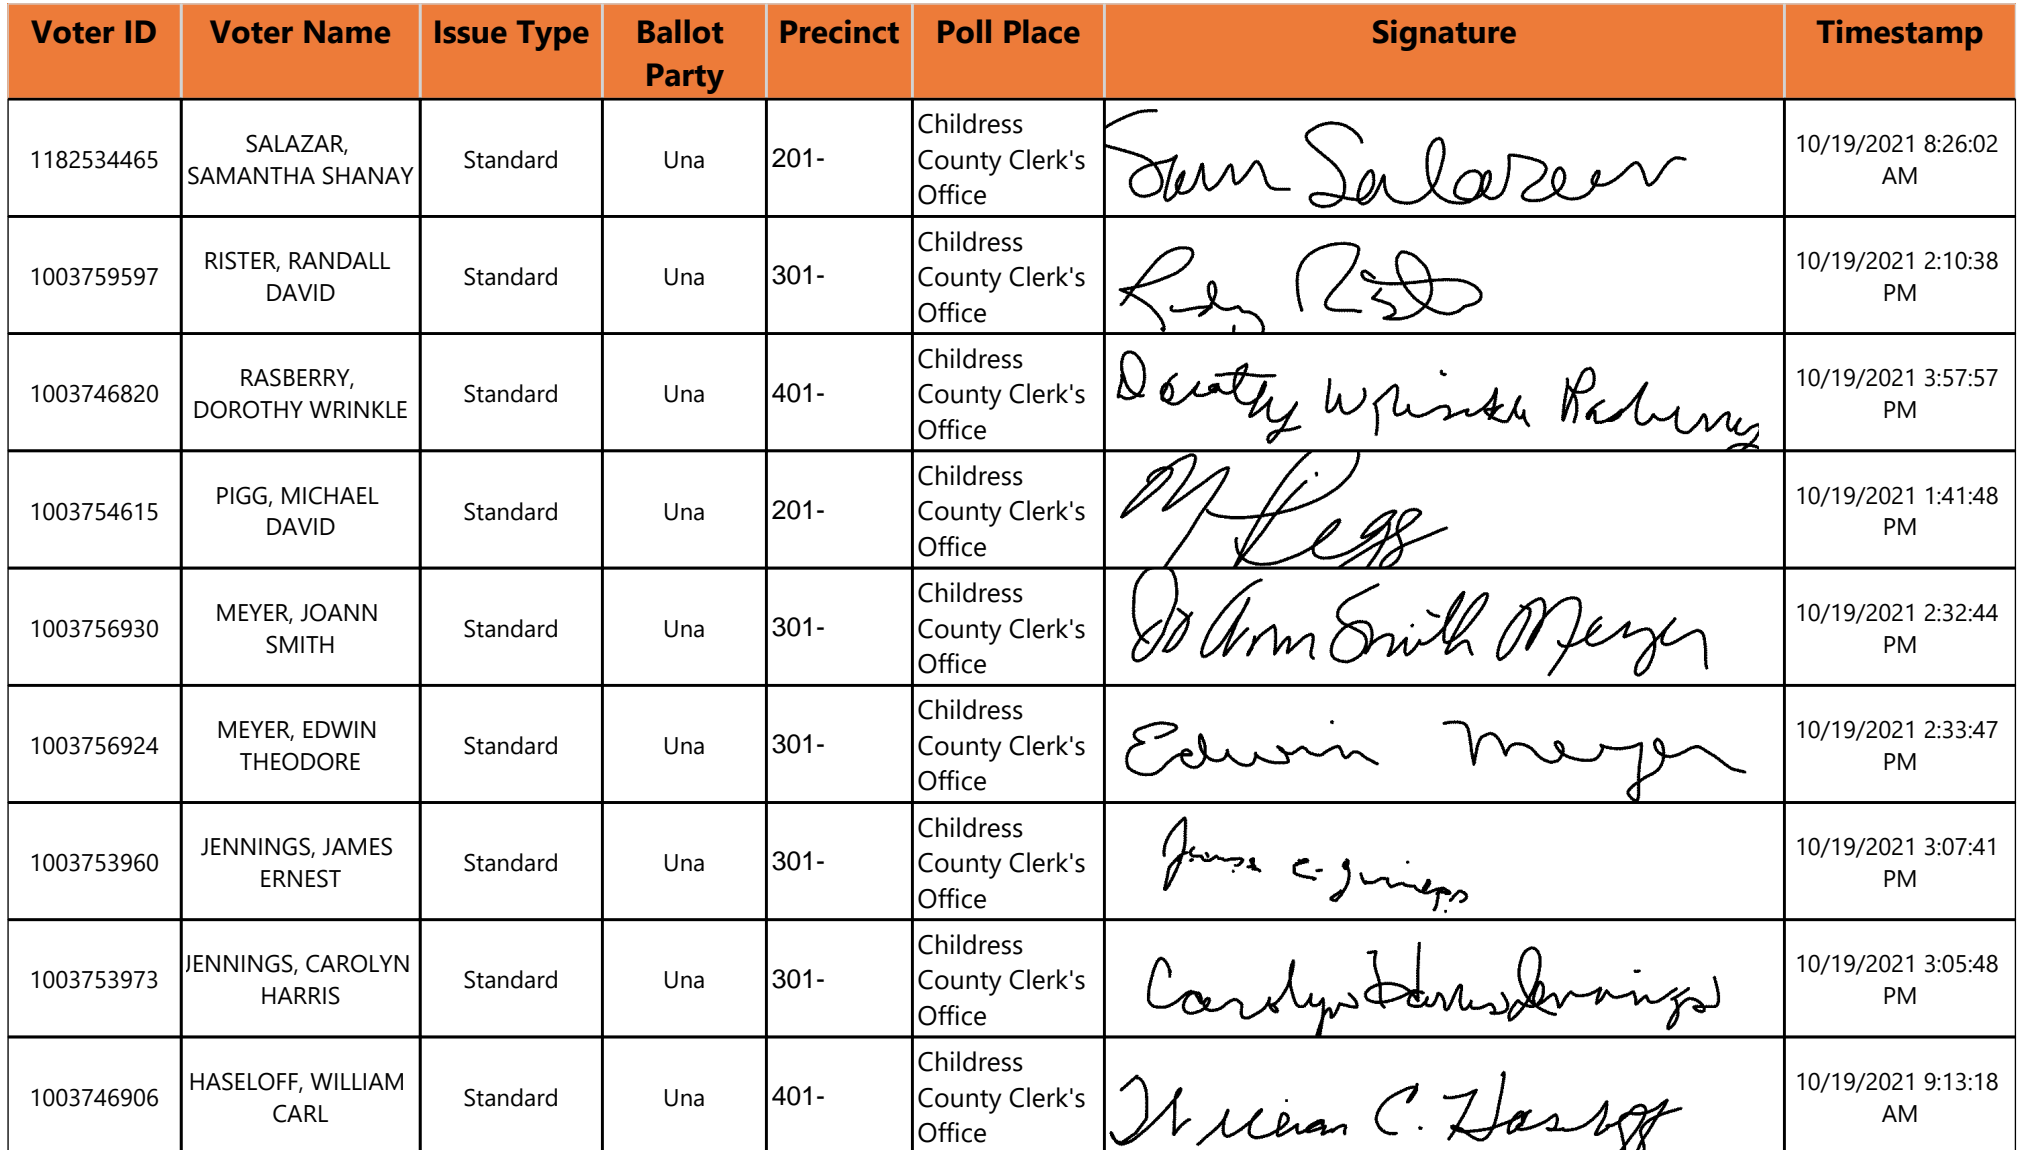 Voter ID Voter Name Issue Type Ballot Party Precinct Poll Place Signature Timestamp
1182534465 SALAZAR, SAMANTHA SHANAY Standard Una 201- Childress County Clerk's Office Sam Salazar 10/19/2021 8:26:02 AM
1003759597 RISTER, RANDALL DAVID Standard Una 301- Childress County Clerk's Office 10/19/2021 2:10:38 PM
1003746820 RASBERRY, DOROTHY WRINKLE Standard Una 401- Childress County Clerk's Office Dorothy Wrinkle Rasberry 10/19/2021 3:57:57 PM
1003754615 PIGG, MICHAEL DAVID Standard Una 201- Childress County Clerk's Office M Pigg 10/19/2021 1:41:48 PM
1003756930 MEYER, JOANN SMITH Standard Una 301- Childress County Clerk's Office Jo Ann Smith Meyer 10/19/2021 2:32:44 PM
1003756924 MEYER, EDWIN THEODORE Standard Una 301- Childress County Clerk's Office Edwin Meyer 10/19/2021 2:33:47 PM
1003753960 JENNINGS, JAMES ERNEST Standard Una 301- Childress County Clerk's Office 10/19/2021 3:07:41 PM
1003753973 JENNINGS, CAROLYN HARRIS Standard Una 301- Childress County Clerk's Office Carolyn Harris Jennings 10/19/2021 3:05:48 PM
1003746906 HASELOFF, WILLIAM CARL Standard Una 401- Childress County Clerk's Office William C. Haseloff 10/19/2021 9:13:18 AM